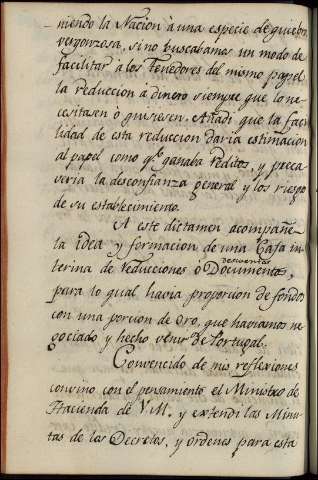 niendo la Nacion à una especie de quiebra
vergonzosa, si no buscabamos un modo de
facilitar à los Tenedores del mismo papel
la reduccion à dinero siempre que lo ne-
cesitasen ò quisiesen. Añadi que la faci
lidad de esta reduccion daria estimacion
al papel como qe. ganaba reditos, y preca-
veria la desconfianza general y los riesgos
de su establecimiento.
A este dictamen acompañe
la idea y formacion de una Caja in-
terina de reducciones ó Documentos,
descuentos
para lo qual havia proporcion de fondos
con una porcion de oro, que haviamos ne
gociado y hecho venir de Portugal.
Convencido de mis reflexiones
convino con el pensamiento el Ministro de
Hacienda de V.M. y extendi las Minu-
tas de los Decretos, y ordenes para esta